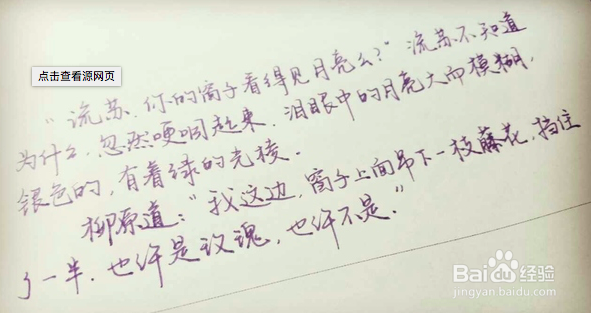 “流苏,你的窗子看得见月亮么?”流苏不知道
点击查看源网页
为什么,忽然哽咽起来.泪眼中的月亮大而模糊,
银色的,有着绿的光棱.
柳原道:“我这边,窗子上面吊下一枝藤花,挡住
了一半.也许是玫瑰,也许不是.”
Baidu经验
jingyan.baidu.com